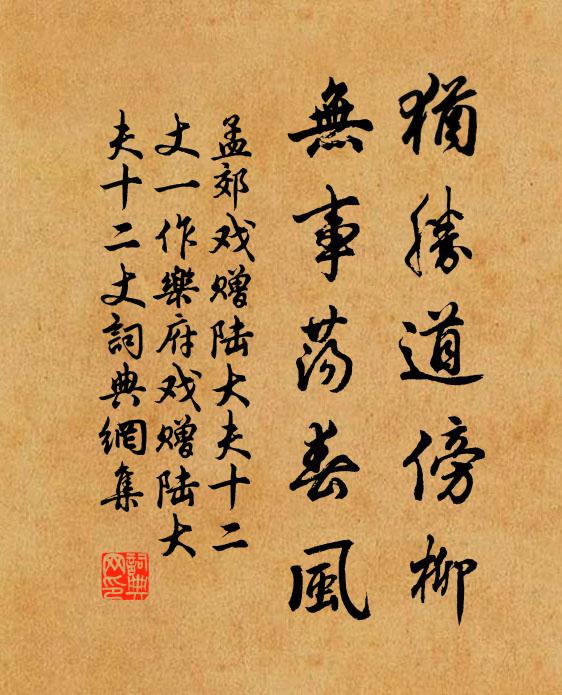 猶勝道傍柳
無事蕩春風
孟郊戏赠陆大夫十二
丈一作樂府戏赠陆大
夫十二丈詞典網集
詞典
网印